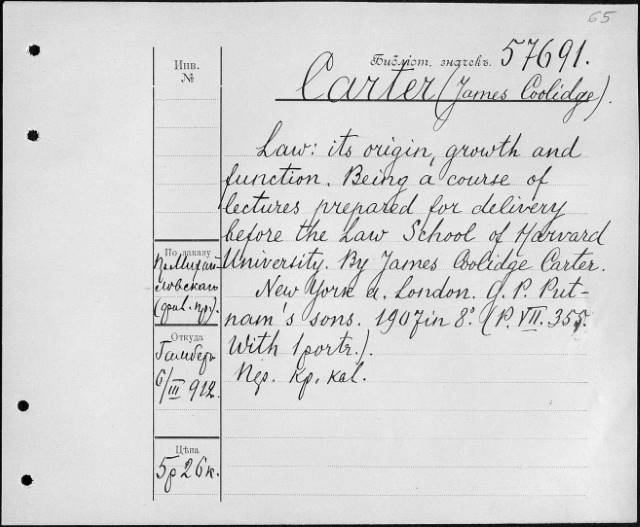 65
Инв.
№
Библіот. значекъ. 57691.
Carter (James Coolidge).
Law: its origin, growth and
function. Being a course of
lectures prepared for delivery
before the Law School of Harvard
University. By James Coolidge Carter.
New York a. London. G. P. Put-
nam's sons. 1907 in 8º. (P. VII. 355.
With 1 portr.).
Пер. кр. кал.
По заказу
Пр. Михай
ловскаго
Откуда
6/III 912
Цѣна
5р 26к.